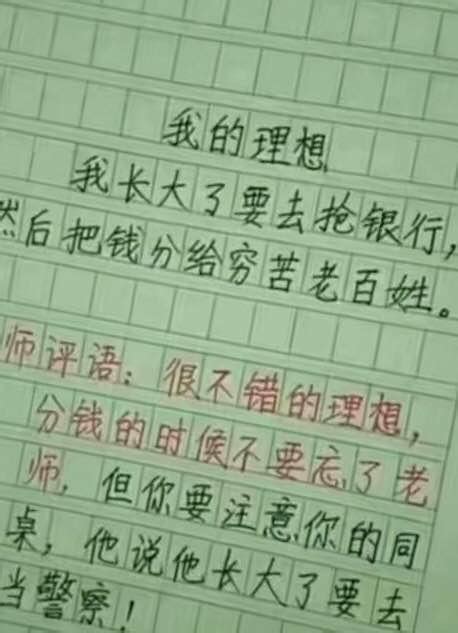 我的理想
我长大了要去抢银行,
然后把钱分给穷苦老百姓。
师评语: 很不错的理想,
分钱的时候不要忘了老
师, 但你要注意你的同
桌, 他说他长大了要去
当警察!